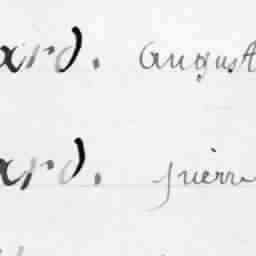 ard. August
ard. pierre